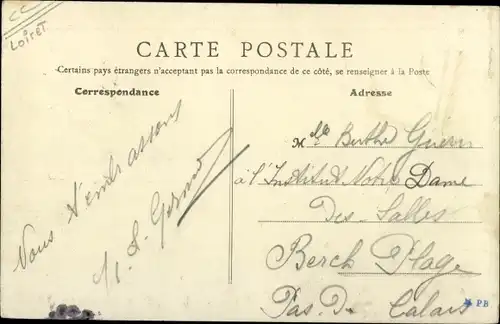 CC
Loiret
CARTE POSTALE
Certains pays étrangers n'acceptant pas la correspondance de ce côté, se renseigner à la Poste
Correspondance
Adresse
Nous t'embrassons
Mlle Berthe Guern
à l'Institut Notre Dame
Des-Salles
Berck Plage
Pas. D. Calais
PB